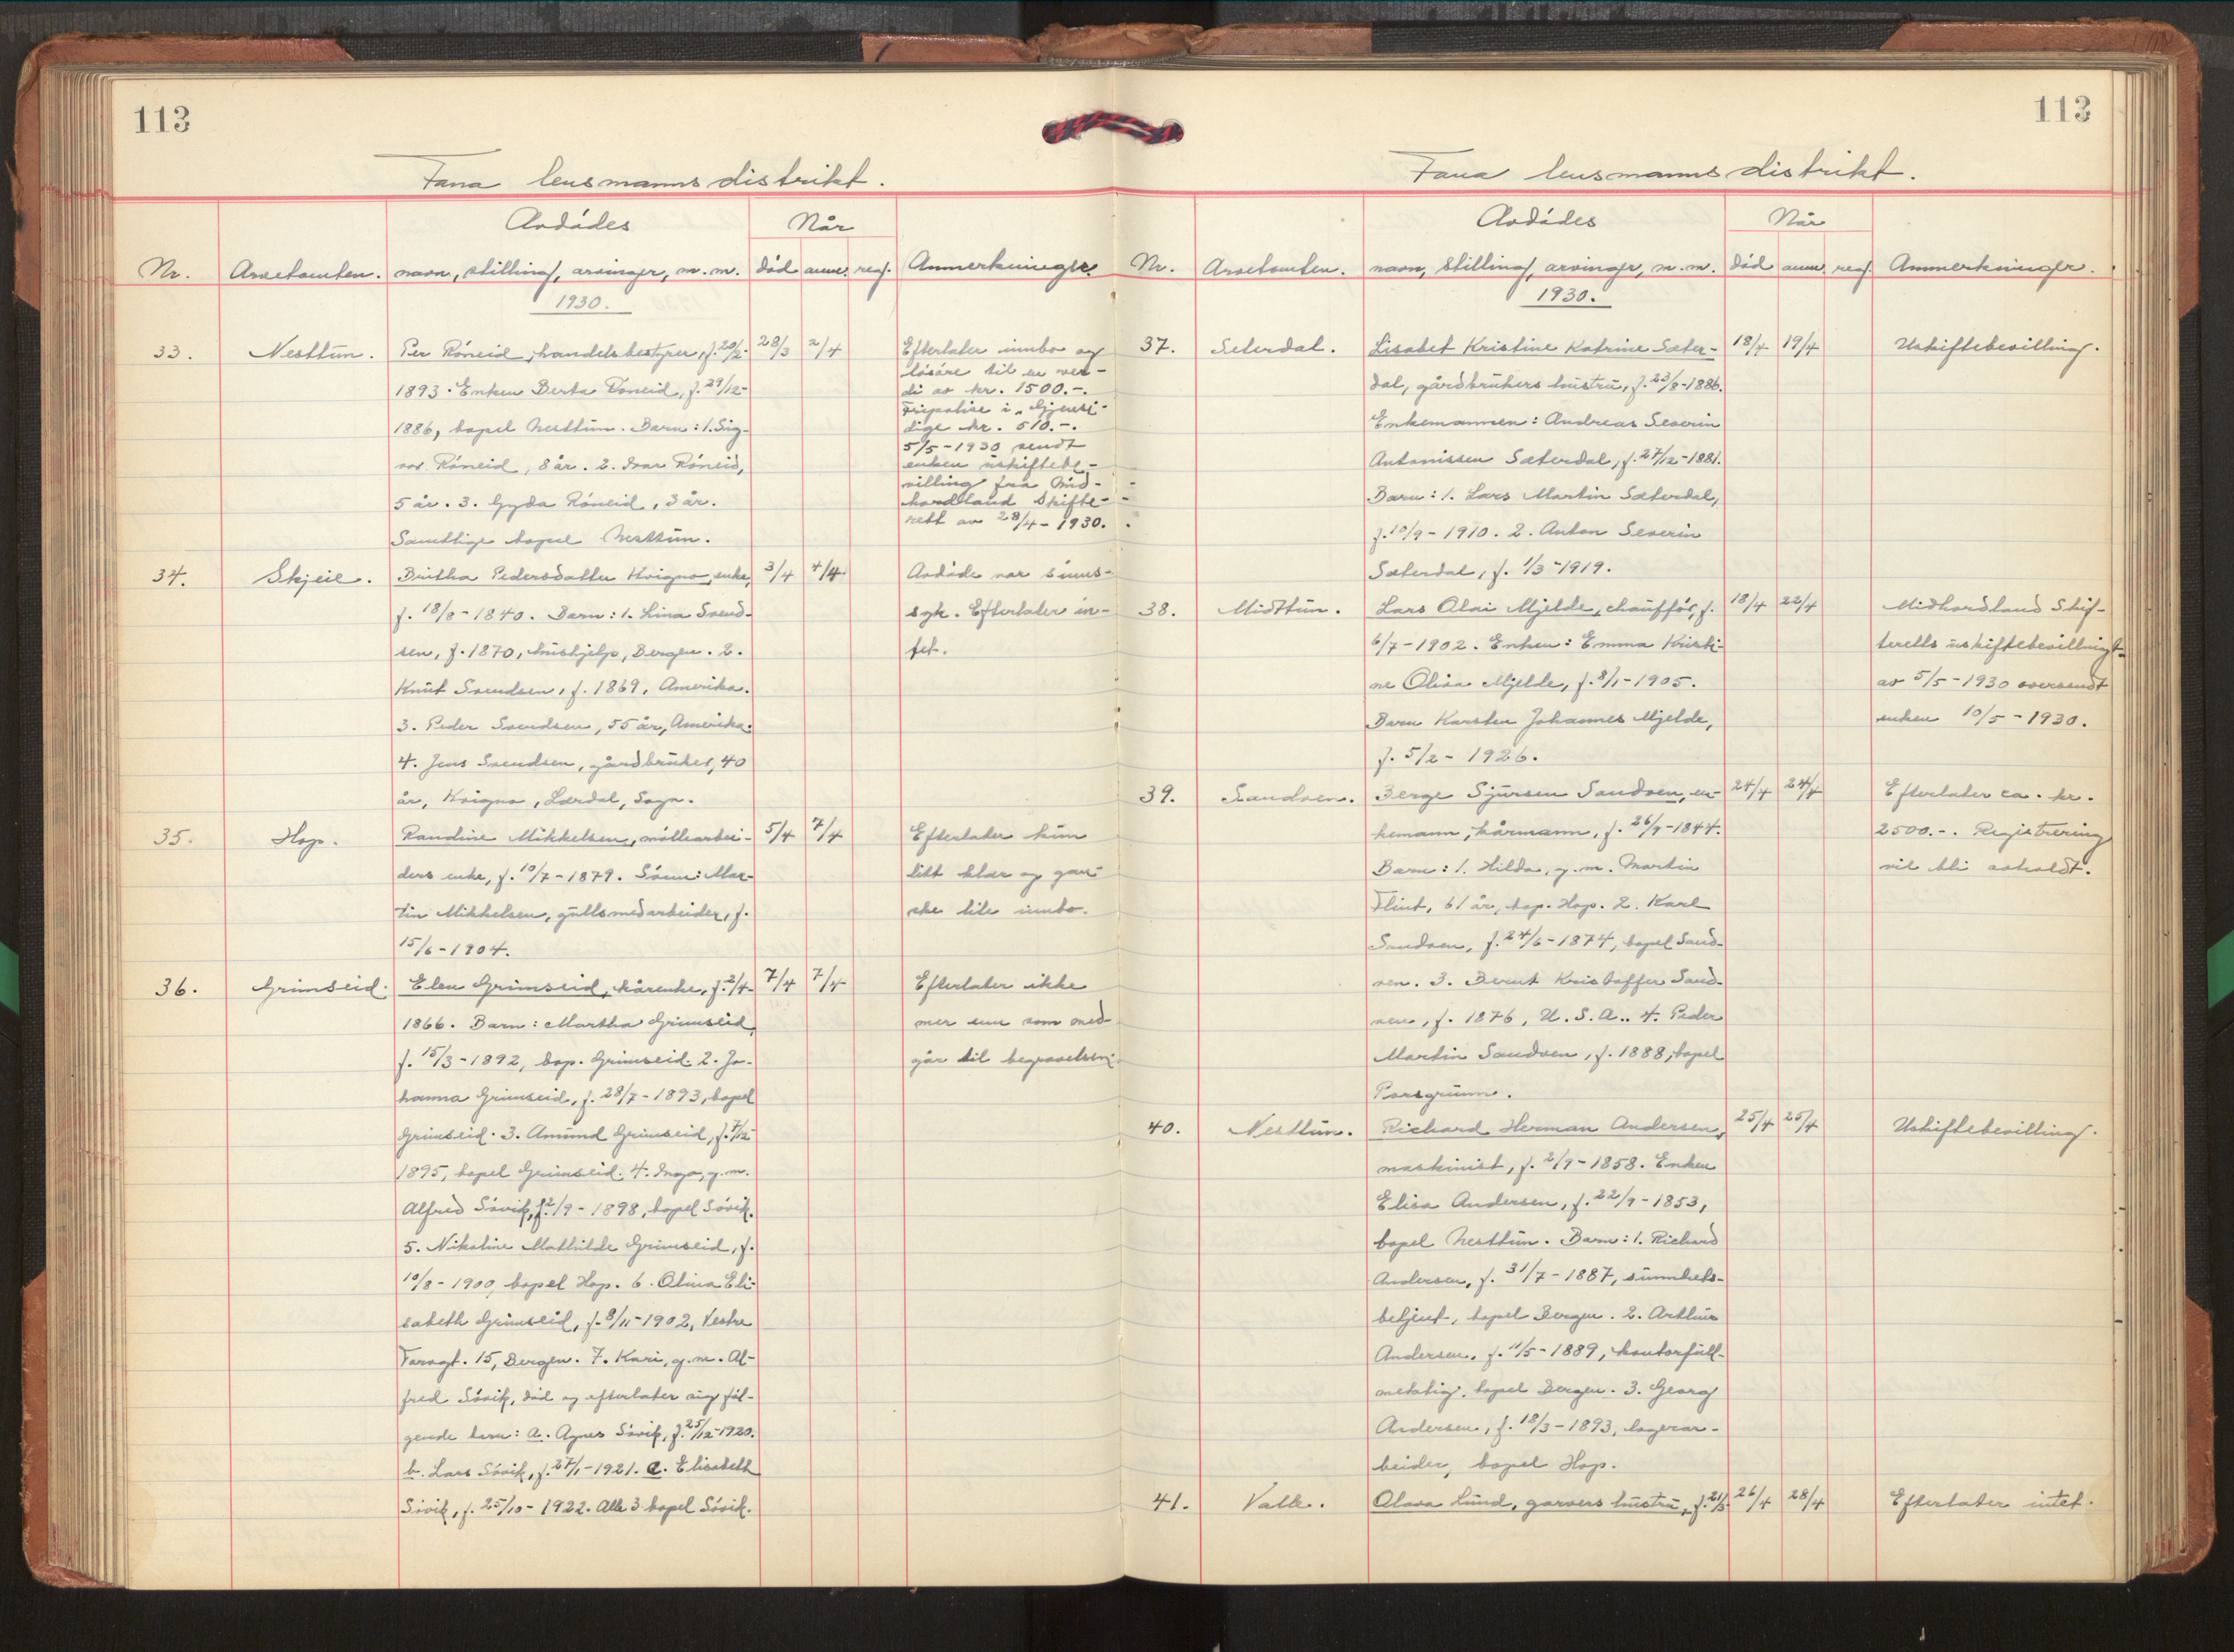 113
Fana lensmannsdistrikt.
Avdødes
Når
Nr. Arvetomten. navn, stilling, arvinger, m. m. død anm. reg. Anmerkninger
1930.
33. Nesttun. Per Røneid, handelsbestyrer, f. 20/2- 28/3 2/4 Efterlater innbo og
løsøre til en ver-
1893. Enken Berta Røneid, f. 29/12- di av kr. 1500.-.
Fripolise i "Gjensi-
1886, bopel Nesttun. Barn: 1. Sig- dige kr. 510.-.
5/5-1930 sendt
vor Røneid, 8 år. 2. Ivar Røneid, enken uskiftebe-
villing fra Mid-
5 år. 3. Gyda Røneid, 3 år. hordland skifte-
rett av 28/4-1930.
Samtlige bopel Nesttun.
34. Skjeie. Britha Pedersdatter Kvigno, enke, 3/4 4/4 Avdøde var sinns-
f. 18/8-1840. Barn: 1. Lina Svend- syk. Efterlater in-
sen, f. 1870, hushjelp, Bergen. 2. tet.
Knut Svendsen, f. 1869, Amerika.
3. Peder Svendsen, 55 år, Amerika.
4. Jens Svendsen, gårdbruker, 40
år, Kvigno, Lærdal, Sogn.
35. Hop. Randine Mikkelsen, møllearbei- 5/4 7/4 Efterlater kun
ders enke, f. 10/7-1879. Sønn: Mar- litt klær og gan-
tin Mikkelsen, gullsmedarbeider, f. ske lite innbo.
15/6-1904.
36. Grimseid. Elen Grimseid, kårenke, f. 2/4- 7/4 7/4 Efterlater ikke
1866. Barn: Martha Grimseid, mer enn som med-
f. 15/3-1892, bop. Grimseid. 2. Jo- går til begravelsen.
hanna Grimseid, f. 28/7-1893, bopel
Grimseid. 3. Amund Grimseid, f. 7/12-
1895, bopel Grimseid. 4. Inga, g. m.
Alfred Søvik, f. 2/9-1898, bopel Søvik.
5. Nikoline Mathilde Grimseid, f.
10/8-1900, bopel Hop. 6. Olina Eli-
sabeth Grimseid, f. 8/11-1902, Vestre
Toragt. 15, Bergen. 7. Kari, g. m. Al-
fred Søvik, død og efterlater sig føl-
gende barn: a. Agnes Søvik, f. 25/12-1920.
b. Lars Søvik, f. 27/1-1921. c. Elisabeth
Søvik, f. 25/10-1922. Alle 3 bopel Søvik.
113
Fana lensmannsdistrikt.
Avdødes
Når
Nr. Arvetomten. navn, stilling, arvinger, m. m. død anm. reg. Anmerkninger.
1930.
37. Seterdal. Lisabet Kristine Katrine Sæter- 18/4 19/4 Uskiftebevilling.
dal, gårdbrukers hustru, f. 23/8-1886.
Enkemannen: Andreas Severin
Antonissen Sæterdal, f. 27/12-1881.
Barn: 1. Lars Martin Sæterdal,
f. 10/9-1910. 2. Anton Severin
Sæterdal, f. 1/3-1919.
38. Midttun. Lars Olai Mjelde, chauffør, f. 18/4 22/4 Midhordland Skif-
6/7-1902. Enken: Emma Kristi- teretts uskiftebevilling
ne Olisa Mjelde, f. 8/1-1905. av 5/5-1930 oversendt
Barn Karsten Johannes Mjelde, enken 10/5-1930.
f. 5/2-1926.
39. Sandven. Berge Sjursen Sandven, en- 24/4 24/4 Efterlater ca. kr.
kemann, kårmann, f. 26/9-1844. 2500.-. Registrering
Barn: 1. Hilda, g. m. Martin vil bli avholdt.
Flint, 61 år, bop. Hop. 2. Karl
Sandven, f. 24/6-1874, bopel Sand-
ven. 3. Bernt Kristoffer Sand-
ven, f. 1876, U. S. A.. 4. Peder
Martin Sandven, f. 1888, bopel
Porsgrunn.
40. Nesttun. Richard Herman Andersen, 25/4 25/4 Uskiftebevilling.
maskinist, f. 2/9-1858. Enken
Elisa Andersen, f. 22/9-1853,
bopel Nesttun. Barn: 1. Richard
Andersen, f. 31/7-1887, sunnhets-
betjent, bopel Bergen. 2. Arthur
Andersen, f. 11/5-1889, kontorfull-
mektig, bopel Bergen. 3. Georg
Andersen, f. 18/3-1893, lagerar-
beider, bopel Hop.
41. Valle. Olava Lund, garvers hustru, f. 21/3- 26/4 28/4 Efterlater intet.